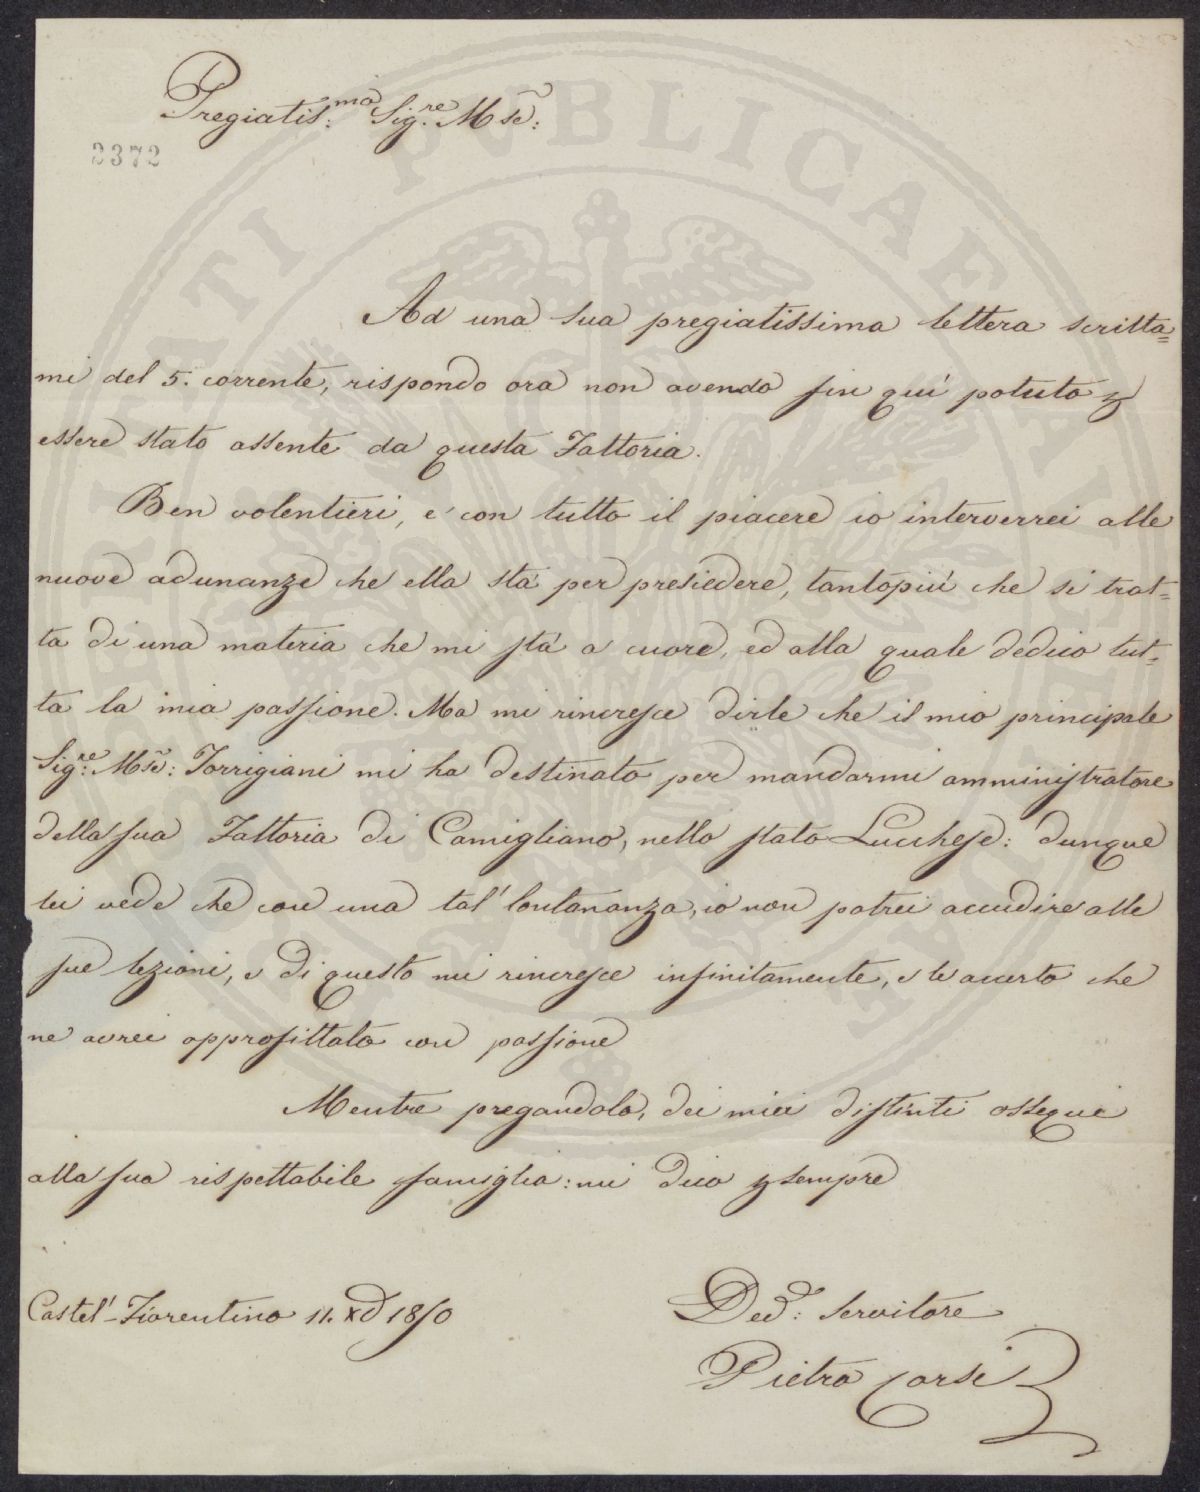 Pregiatis:mo Sig:re Mse:
2372
Ad una sua pregiatissima lettera scritta=
mi del 5. corrente, rispondo ora non avendo fin quì potuto p
essere stato assente da questa Fattoria.
Ben volentieri, e con tutto il piacere io interverrei alle
nuove adunanze che ella stà per presiedere, tantopiù che si trat=
ta di una materia che mi stà a cuore, ed alla quale dedico tut=
ta la mia passione. Ma mi rincresce dirle che il mio principale
Sig:re Mse: Torrigiani mi ha destinato per mandarmi amministratore
della sua Fattoria di Camigliano, nello stato Lucchese: dunque
lei vede che con una tal' lontananza, io non potrei accudire alle
sue lezioni, e di questo mi rincresce infinitamente, e le accerto che
ne avrei approfittato con passione
Mentre pregandola, dei miei distinti ossequi
alla sua rispettabile famiglia: mi dico p sempre
Castel'-Fiorentino 11. Xd 1850
Ded: Servitore
Pietro Corsi